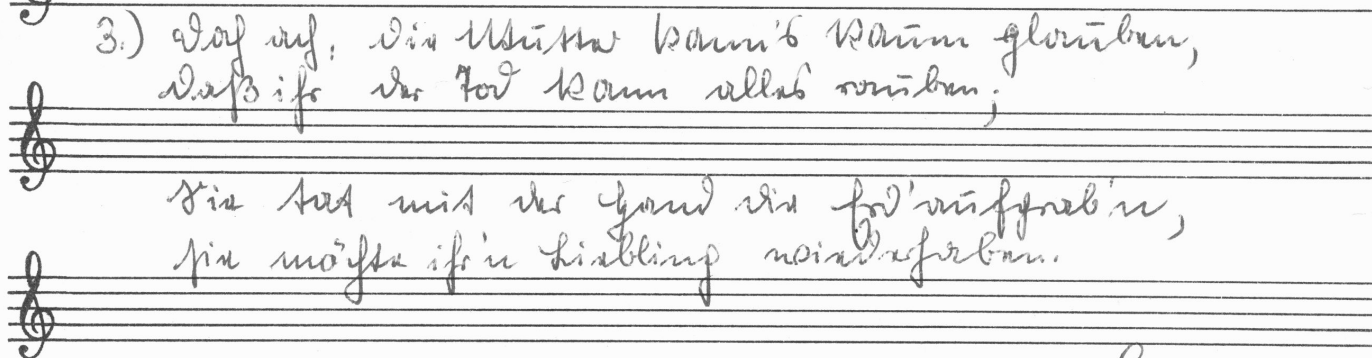 3.) Doch ach, die Mutter kann's kaum glauben,
daß ihr der Tod kann alles rauben;
Sie tat mit der Hand die Erd' aufgrab'n,
sie möchte ihr'n Liebling wiederhaben.